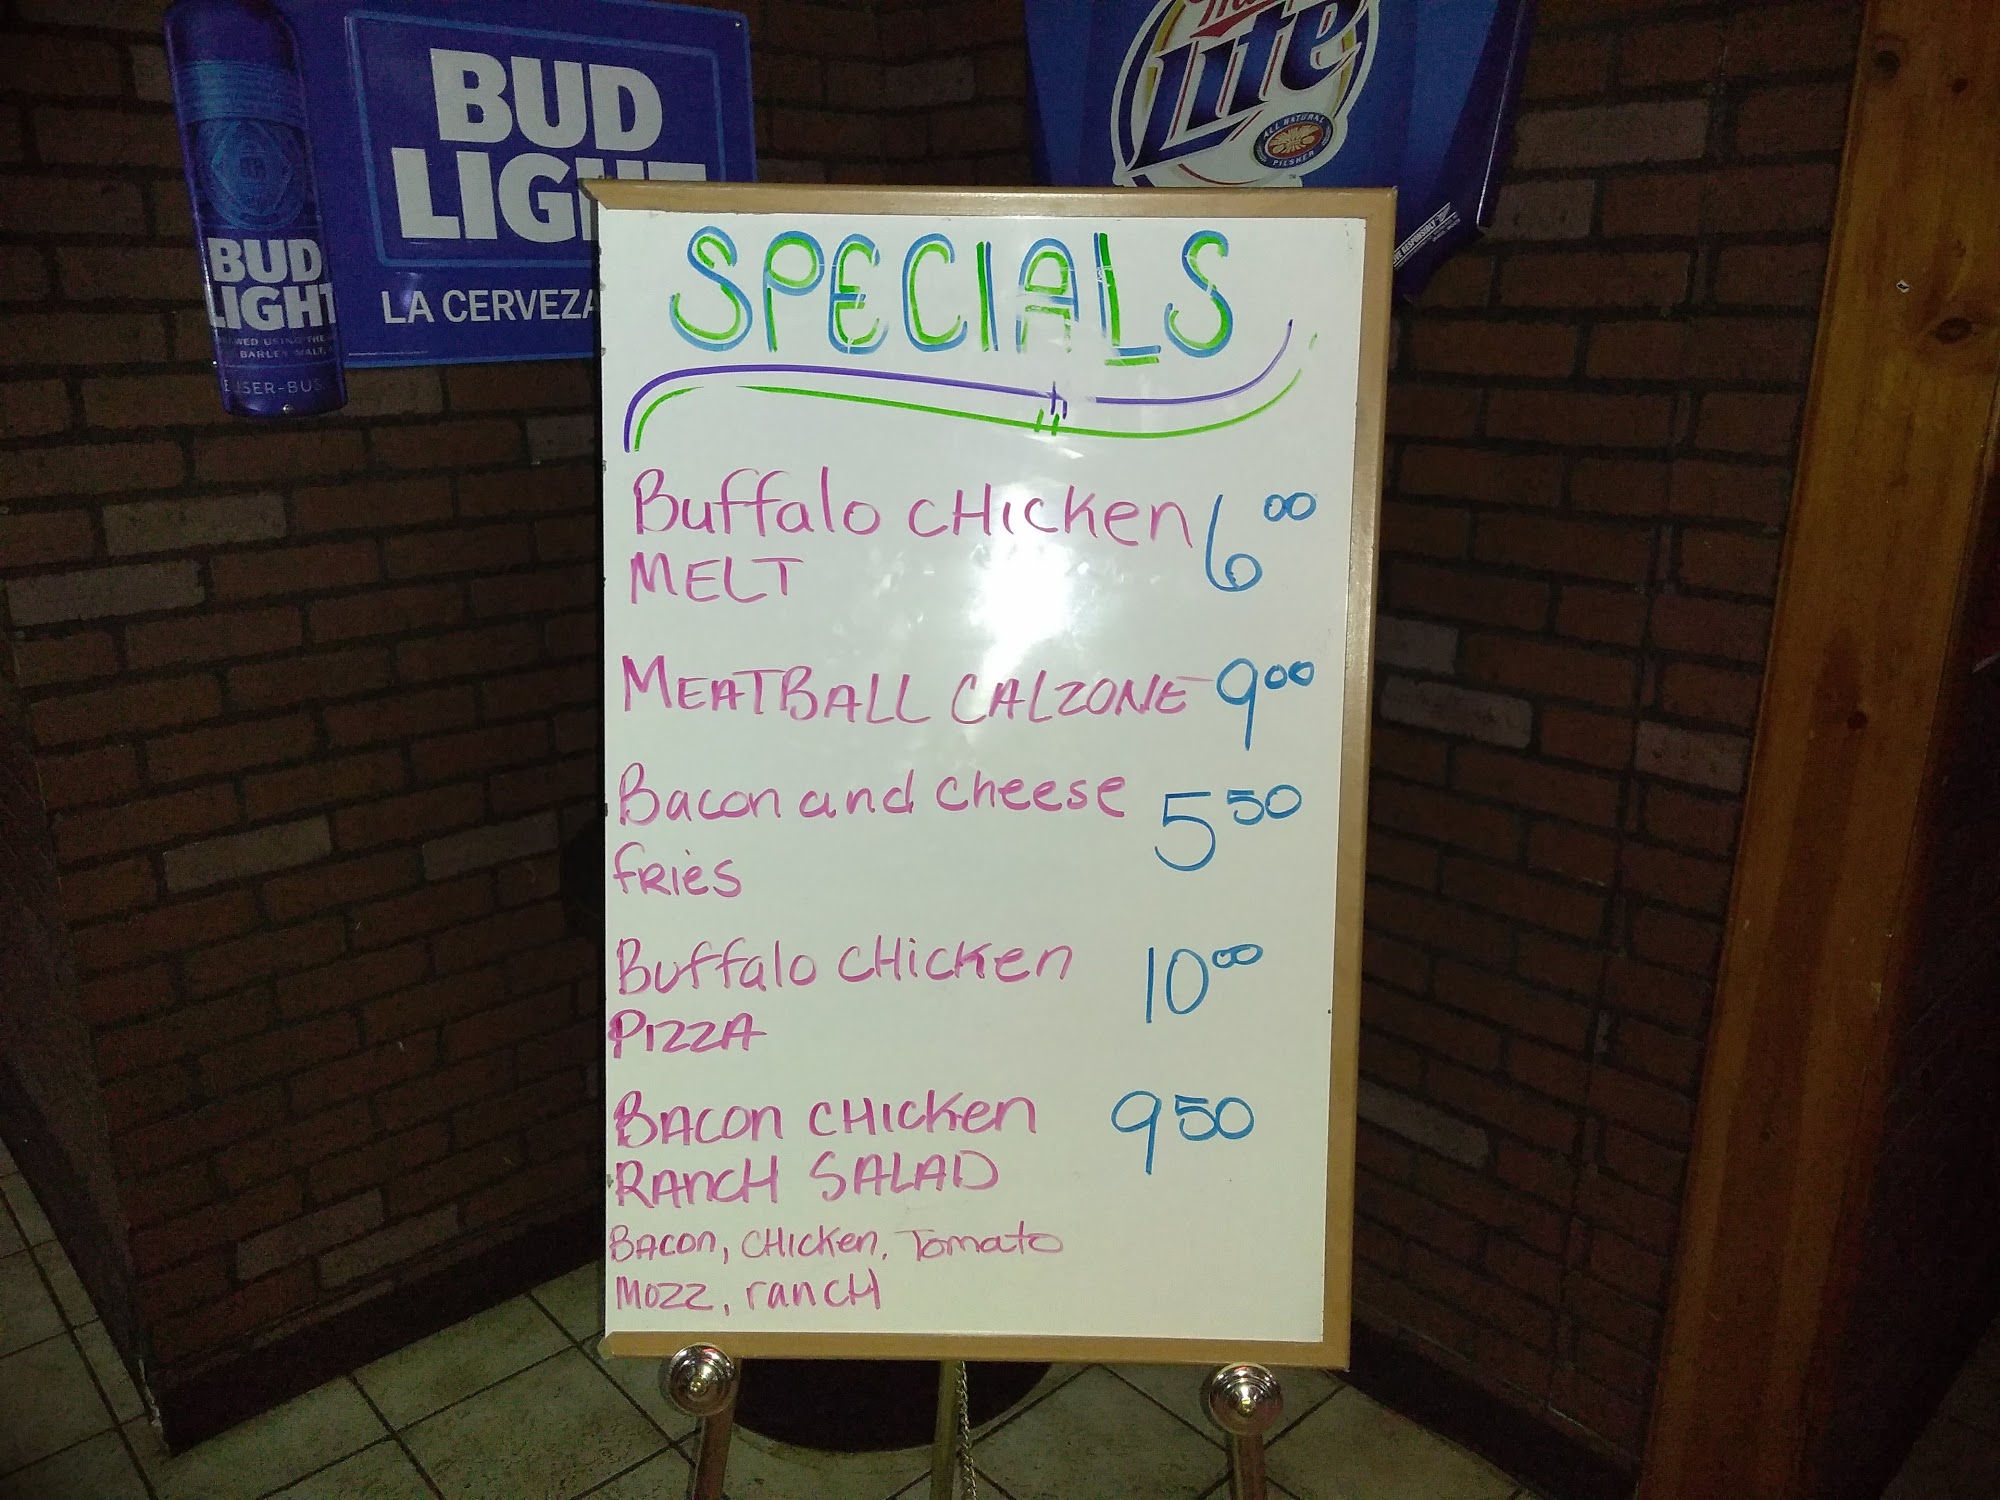 BUD
LIGH
LA CERVEZA
BUD
LIGHT
BARLEY MALT,
Lite
ALL NATURAL
PILSNER
SPECIALS
Buffalo CHicken 6 00
MELT
MEATBALL CALZONE 9 00
Bacon and cheese 5 50
fries
Buffalo CHicken 10 00
PIZZA
BACON CHicken 9 50
RANCH SALAD
BACON, CHicken, Tomato
Mozz, rancH